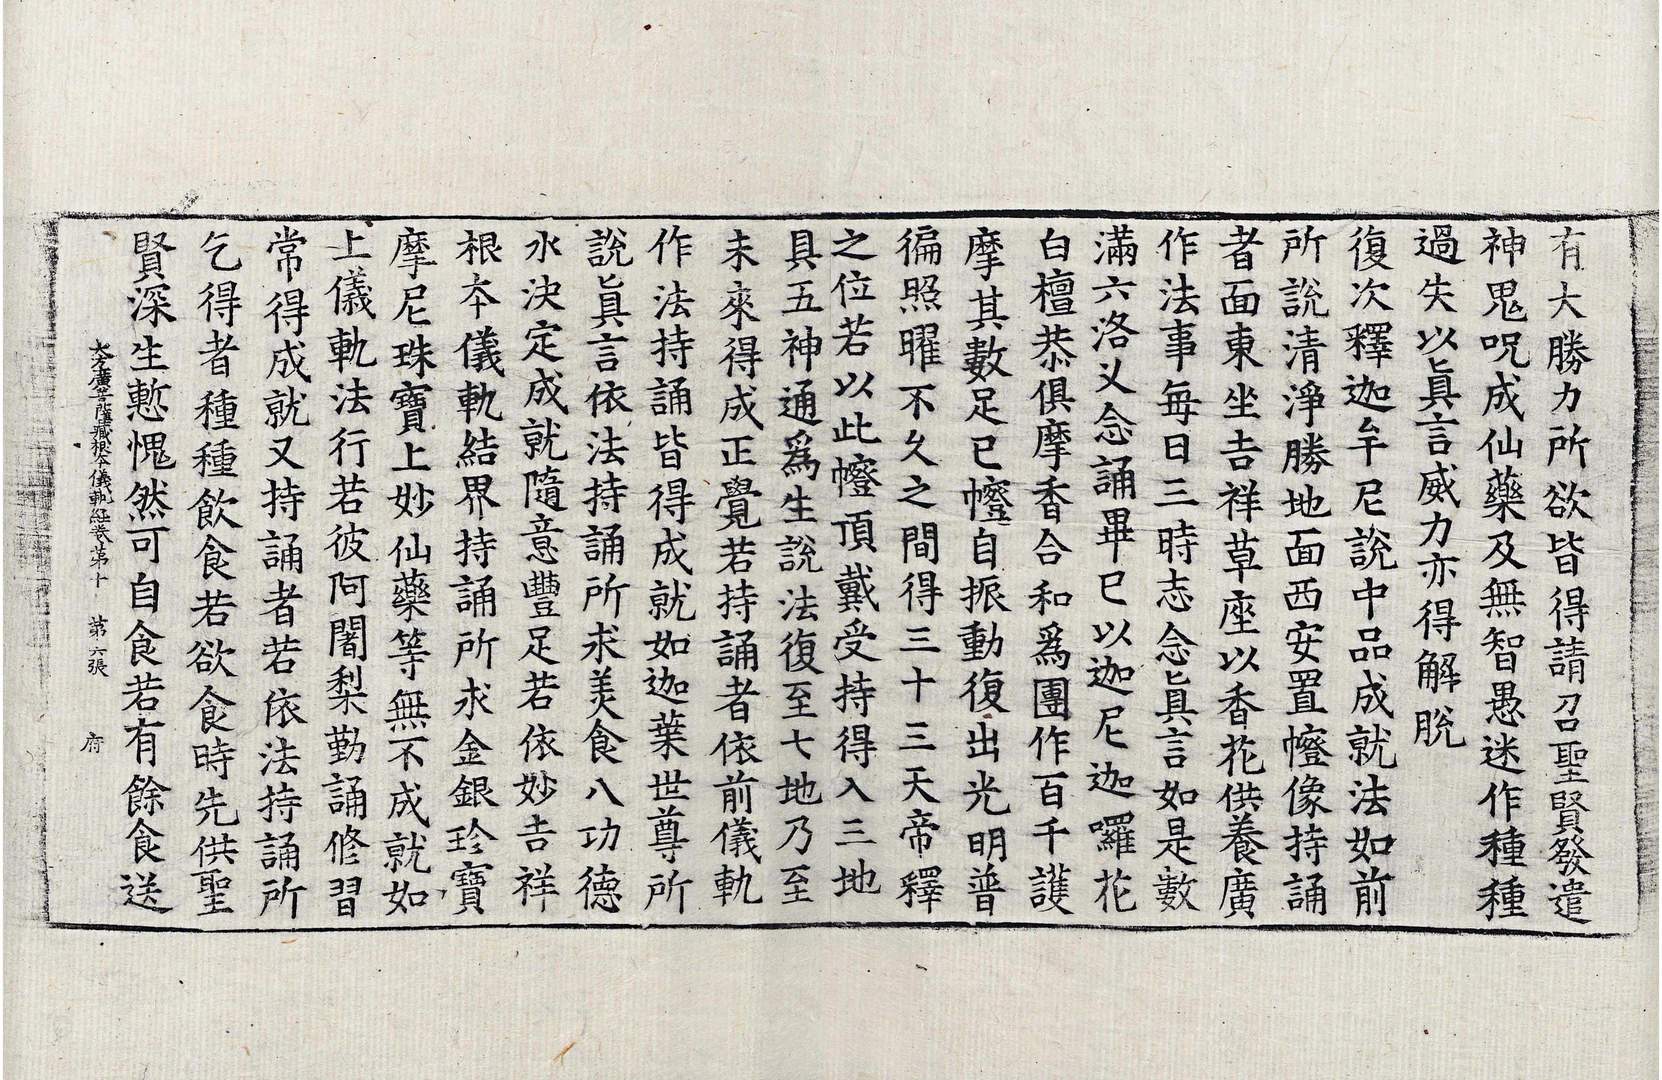 有大勝力所欲皆得請召聖賢發遣
神鬼呪成仙藥及無智愚迷作種種
過失以眞言威力亦得解脫
復次釋迦牟尼說中品成就法如前
所說清淨勝地面西安置㡧像持誦
者面東坐吉祥草座以香花供養廣
作法事每日三時志念眞言如是數
滿六洛叉念誦畢已以迦尼迦囉花
白檀恭俱摩香合和爲團作百千護
摩其數足已㡧自振動復出光明普
徧照曜不久之間得三十三天帝釋
之位若以此㡧頂戴受持得入三地
具五神通爲生說法復至七地乃至
未來得成正覺若持誦者依前儀軌
作法持誦皆得成就如迦葉世尊所
說眞言依法持誦所求美食八功德
水決定成就隨意豐足若依妙吉祥
根本儀軌結界持誦所求金銀珍寶
摩尼珠寶上妙仙藥等無不成就如
上儀軌法行若彼阿闍梨勤誦修習
常得成就又持誦者若依法持誦所
乞得者種種飲食若欲食時先供聖
賢深生慙愧然可自食若有餘食送
大方廣菩薩藏根本儀軌経卷第十 第六張 府